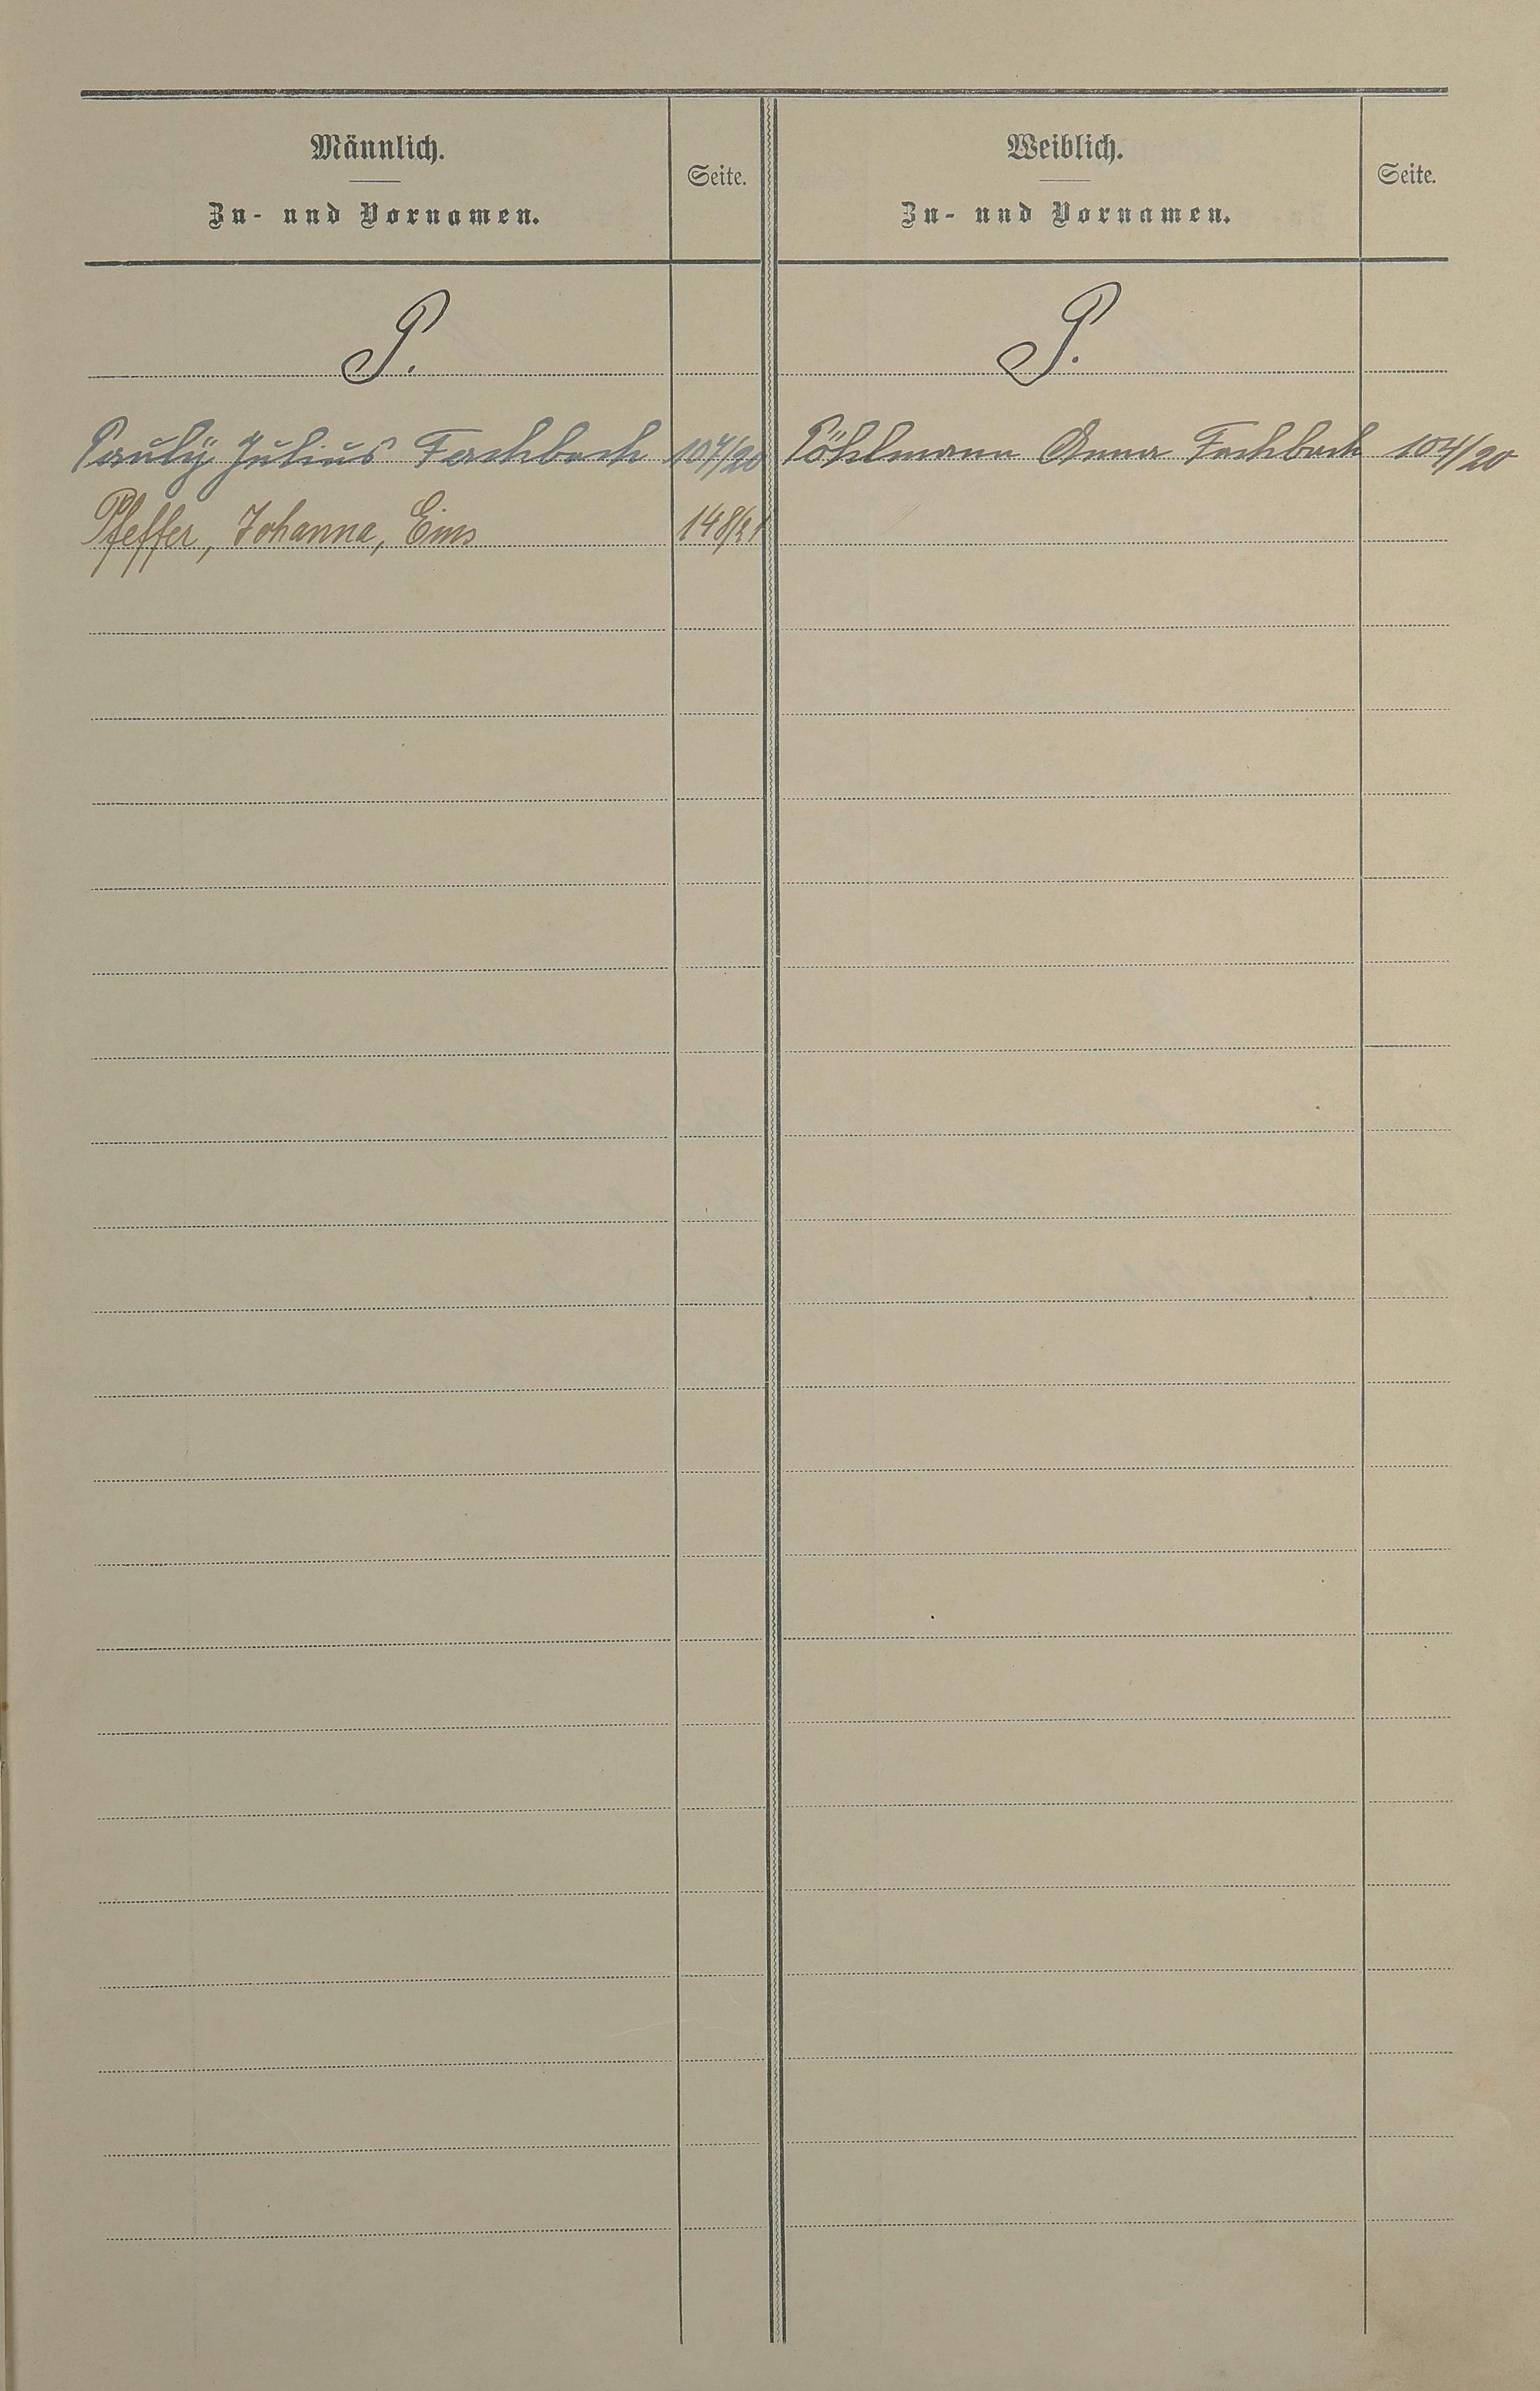 Männlich.
Zu- und Vornamen.
Seite.
Weiblich.
Zu- und Vornamen.
Seite.
P.
P.
Pauly Julius Fachbach 107/20
Pöhlmann Anna Fachbach 104/20
Pfeffer, Johanna, Ems 148/21